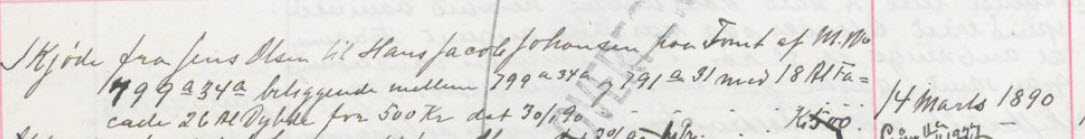 Skjøde fra Jens Olsen til Hans Jacob Johansen paa Tomt af M. No
799 a 34 a beliggende mellem 799 a 34 a og 791 a 31 med 18 Al Fa=
cade 26 Al Dybde for 500 Kr dat 30/1 90 Kr 500.
14 Marts 1890